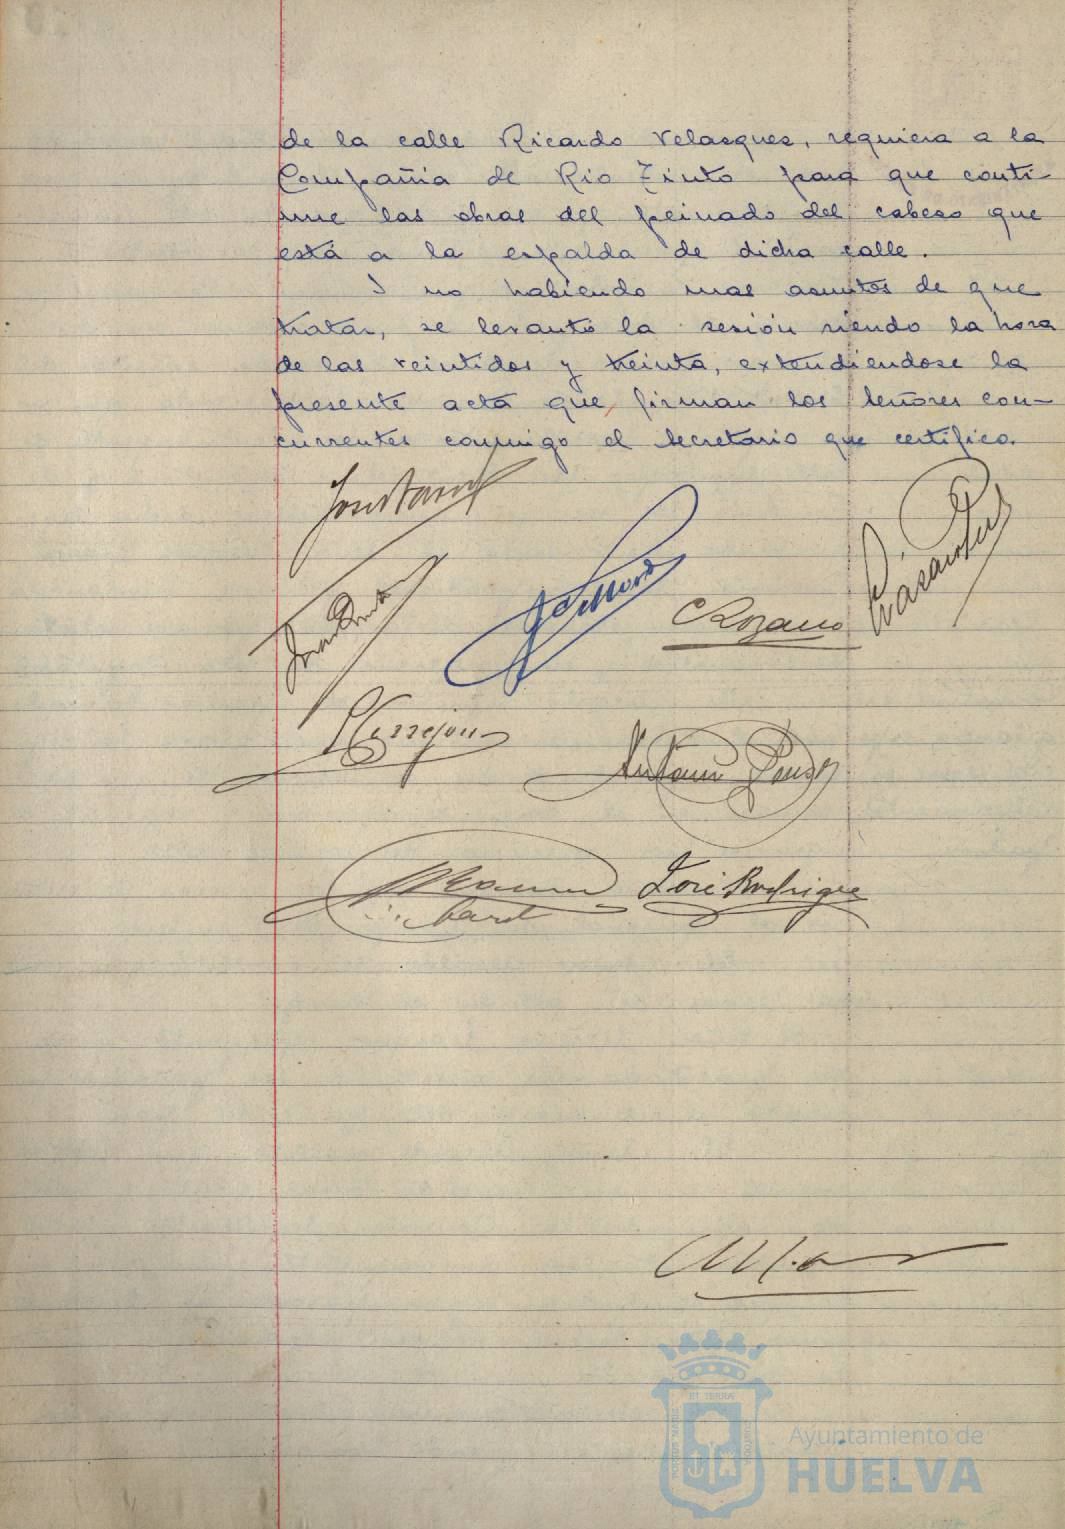 de la calle Ricardo Velasques, requiera a la
Compañia de Rio Tinto para que conti-
nue las obras del peinado del cabeso que
está a la espalda de dicha calle.
I no habiendo mas asuntos de que
tratar, se levantó la sesión siendo la hora
de las veintidos y treinta, extendiendose la
presente acta que firman los señores con-
currentes conmigo el secretario que certifico.
Lozano
Antonio Ponce
José Rodrigue
PORTUS MARIS
ET TERRÆ
CUSTODIA
Ayuntamiento de
HUELVA